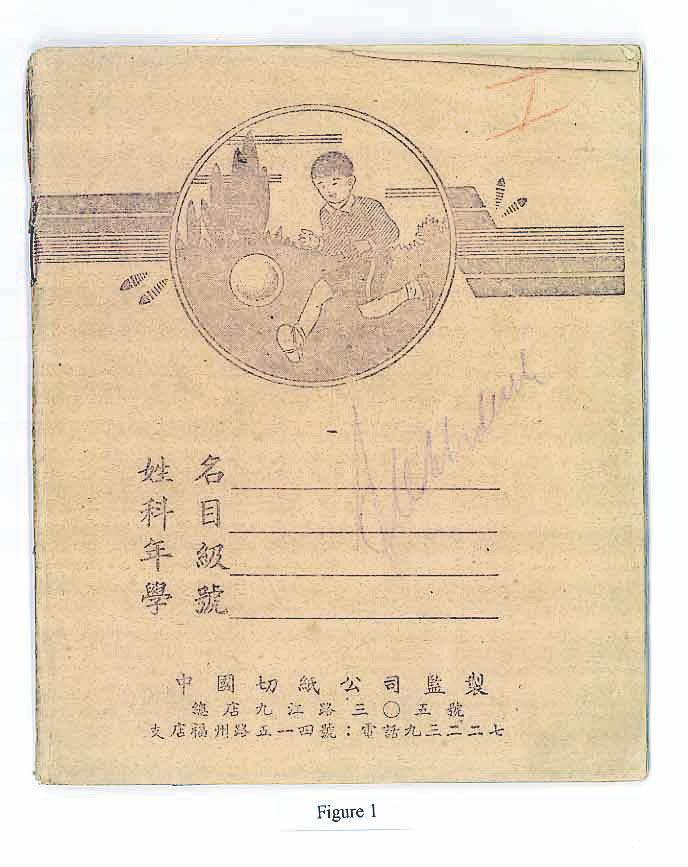 I
姓名
科目
年級
學號
中國切紙公司監製
總店九江路三〇五號
支店福州路五一四號：電話九三二二七
Figure 1